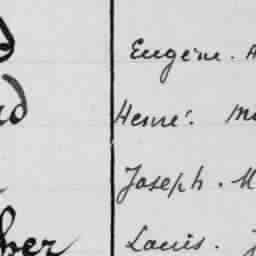 Eugène.
d Henri. M
Joseph. M
her Louis. J